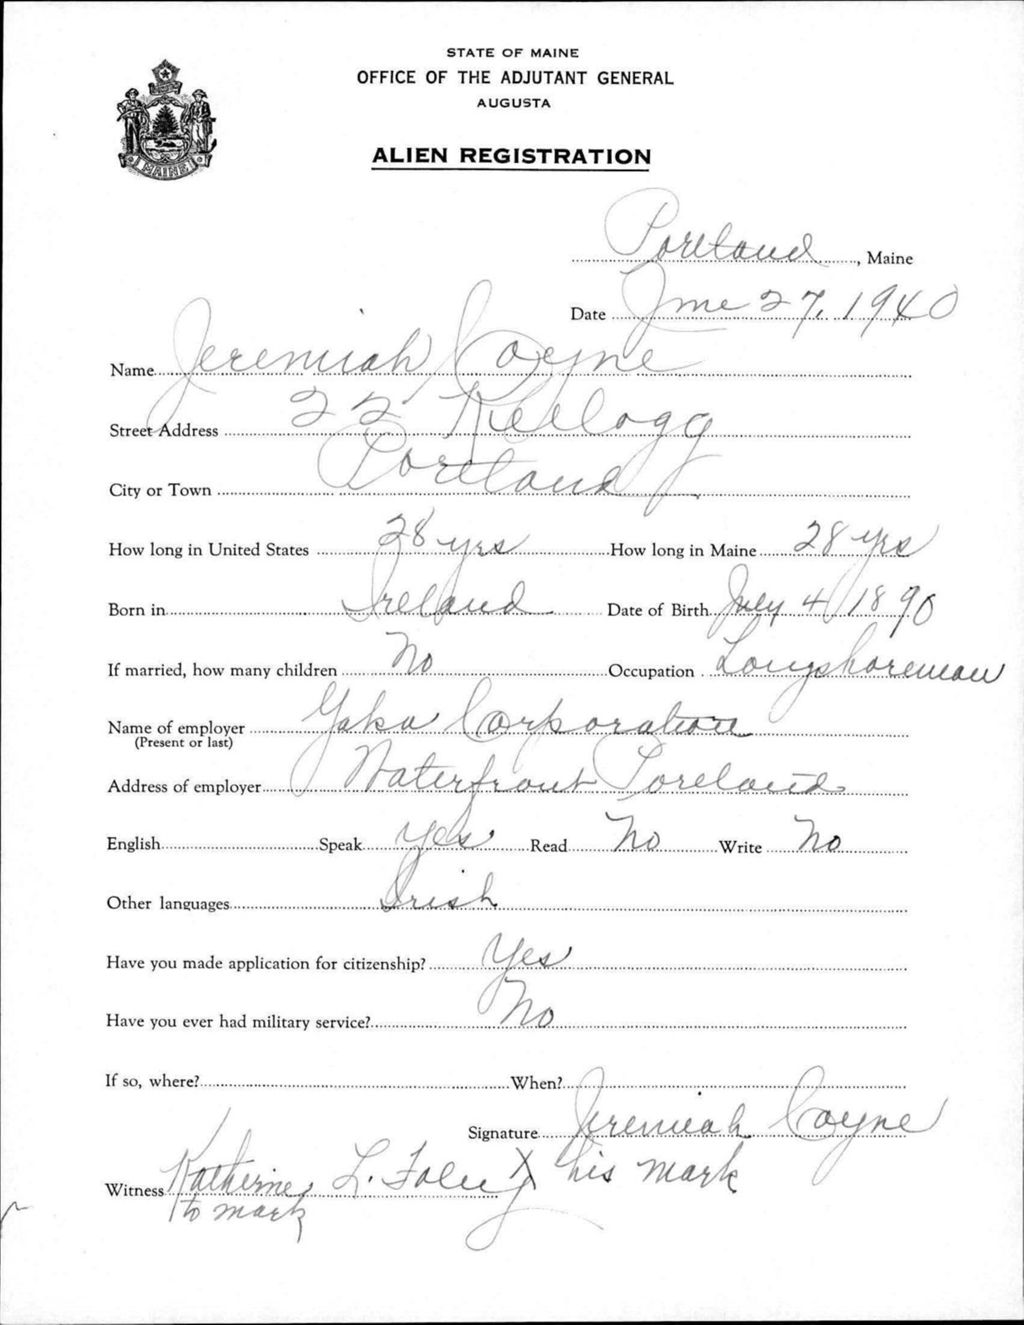 STATE OF MAINE
OFFICE OF THE ADJUTANT GENERAL
AUGUSTA
ALIEN REGISTRATION
MAINE
Portland, Maine
Date June 27, 1940
Name Jeremiah Coyne
Street Address 22 Kellogg
City or Town Portland
How long in United States 28 yrs How long in Maine 28 yrs
Born in Ireland Date of Birth July 4 1890
If married, how many children No Occupation Longshoreman
Name of employer Corporation
(Present or last)
Address of employer Waterfront Portland
English Speak Yes Read No Write No
Other languages Irish
Have you made application for citizenship? Yes
Have you ever had military service? No
If so, where? When?
Signature Jeremiah Coyne
Witness Katherine L. Foley X his mark
to mark